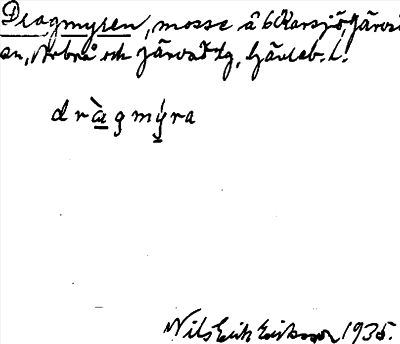 Dragmyren, mosse å bKarsjö, Järvsö
sn, Arbrå och Järvsö tg, Gävleb. l.
dràgmýra
Nils Erik Eriksson 1935.